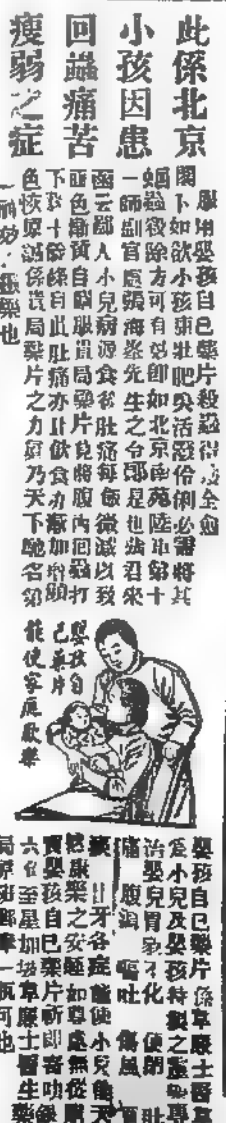 此係北京
小孩因患
回蟲痛苦
瘦弱之症
服用嬰孩自己藥片殺蟲得以全愈
閣下如欲小孩康壯肥美活潑伶俐必需將其
蛔蟲殺除方可有効卽如北京南苑陸軍第十
一師副官處張海峯先生之令郎是也張君來
函云鄙人小兒病源食後肚痛每飯微減以致
面色黃自服貴局藥片竟將腹內回蟲打
下數十餘條自此肚痛亦止飲食亦漸加增顏
色恢原誠係貴局藥片之力實乃天下馳名第
一藥也
嬰孩自
己藥片
能使家庭歡樂
嬰孩自己藥片係韋廉士醫
小兒及嬰孩特製之專
治嬰兒胃家不化 便閉 肚
痛 腹瀉 嘔吐 傷風
牙各症能使小兒
康樂之安睡如尊處無從購
嬰孩自己藥片祈卽寄
六 至星加坡韋廉士醫生藥
局原班郵奉一瓶可也